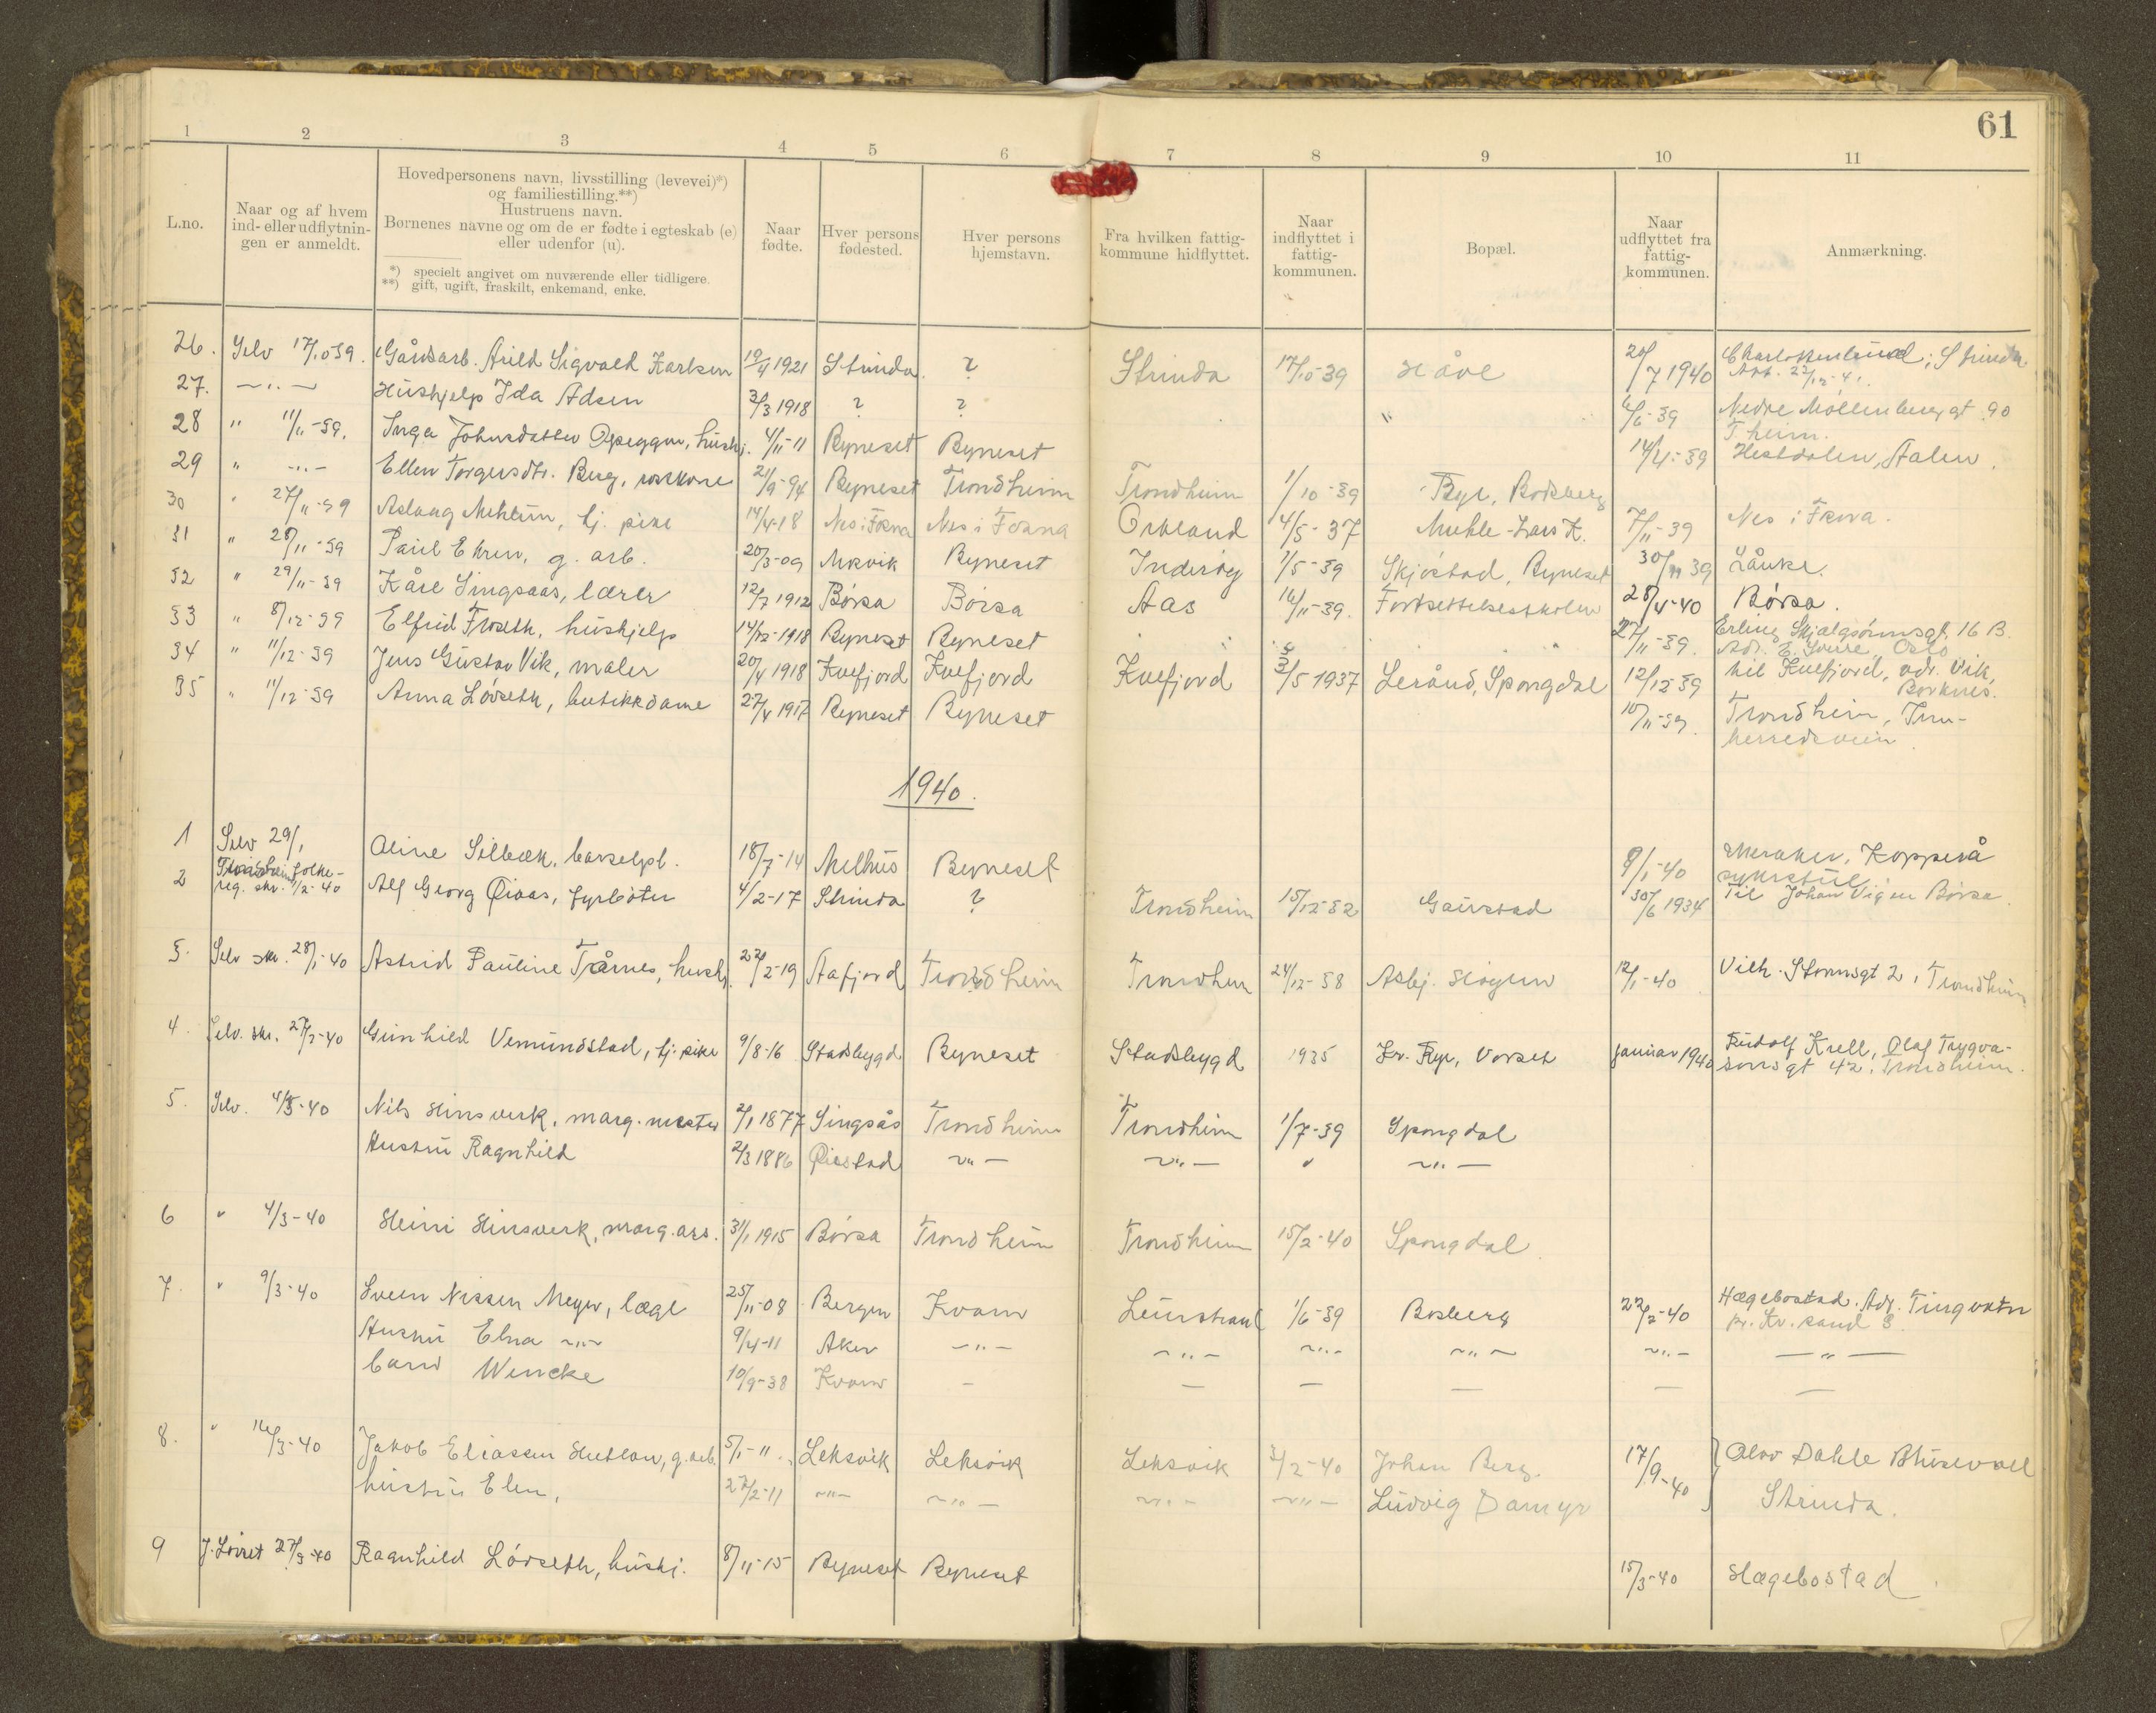 61
1 2 3 4 5 6 7 8 9 10 11
L.no.
Naar og af hvem
ind- eller udflytnin-
gen er anmeldt.
Hovedpersonens navn, livsstilling (levevei)*)
og familiestilling.**)
Hustruens navn.
Børnenes navne og om de er fødte i egteskab (e)
eller udenfor (u).
*) specielt angivet om nuværende eller tidligere.
**) gift, ugift, fraskilt, enkemand, enke.
Naar
fødte.
Hver persons
fødested.
Hver persons
hjemstavn.
Fra hvilken fattig-
kommune hidflyttet.
Naar
indflyttet i
fattig-
kommunen.
Bopæl.
Naar
udflyttet fra
fattig-
kommunen.
Anmærkning.
26. Selv 17/10 39. Gårdsarb. Arild Sigvald Karlsen 19/4 1921 Strinda ? Strinda 17/10-39 Håve 20/7 1940 Charlottenlund i Strinda
27. -"- Hushjelp Ida Adsen 3/3 1918 ? ? " 6/6-39 Nedre Møllenberggt. 90
T.heim.
28 " 11/11-39. Inga Johnsdatter hushj. 4/11-11 Byneset Byneset 14/4-39 Hestdalen, Aalen.
29 " -"- Ellen Torgersdtr. Berg, 21/9-94 Byneset Trondheim Trondheim 1/10-39 Bye, Bosberg
30 " 27/11-39 Aslaug Mehlum, tj. pike 14/4-18 Nes i Fosna Nes i Fosna Orkland 4/5-37 Muhle-Lars K. 7/11-39 Nes i Fosna.
31 " 28/11-39 Paul Ekren, g. arb. 20/3-09 Mosvik Byneset Inderøy 1/5-39 Skjøstad, Byneset 30/11 39 Lånke.
32 " 29/11-39 Kåre Singsaas, lærer 12/7 1912 Børsa Børsa Aas 16/11-39. Fortsettelsesskolen 28/4-40 Børsa.
33 " 8/12-39 Elfrid Froseth, hushjelp 14/12-1918 Byneset Byneset 27/11-39. Erling Skjalgsønnsgt. 16 B.
Oslo
34 " 11/12-39 Jens Gustav Vik, maler 20/4 1918 Kvefjord Kvefjord Kvefjord 3/5 1937 Lerånd, Spongdal 12/12 39 til Kvefjord, adr. Vik,
Borknes.
35 " 11/12-39 Anna Løvseth, butikkdame 27/4 1917 Byneset Byneset 10/11-39. Trondheim, Inn-
herredsveien.
1940.
1 Selv 29/1 Aline Silbæk, barselpl. 18/7-14 Melhus Byneset 9/1-40 Meraker, Kopperå
sykestue
2 Trondheim folke-
reg. skr. 1/2-40 Alf Georg Øiaas, fyrbøter 4/2-17 Strinda ? Trondheim 15/12-32 Gaustad 30/6 1934 Til Johan Vigen Børsa.
3. Selv skr. 28/1-40 Astrid Pauline Trårnes, hushj. 22/2-19 Aafjord Trondheim Trondheim 24/12-38 Asbj. Høgum 12/1-40 Vilh. Stormsgt 2, Trondheim
4. Selv. skr. 27/2-40 Gunhild Vemundstad, tj. pike 9/8-16 Stadsbygd Byneset Stadsbygd 1935 Kr. Rye, Vorset januar 1940 Rudolf Krell, Olaf Trygva-
sonsgt 42. Trondheim.
5. Selv. 4/3-40 Nils Hinsverk, marg. mester 2/1 1877 Singsås Trondheim Trondheim 1/7-39 Spongdal
Hustru Ragnhild 2/3 1886 -"- -"- " -"-
6 " 4/3-40 Heini Hinsverk, marg. ass. 31/1 1915 Børsa Trondheim Trondheim 15/2-40 Spongdal.
7. " 9/3-40 Svein Nissen Meyer, læge 25/11-08 Bergen Kvam Leinstrand 1/6-39 Bosberg 22/2-40 Hægebostad. Adr. Tingvatn
pr. Kr.sand S.
Hustru Elna -"- 9/4-11 Aker -"- -"- -"- -"- -"- -"-
barn Wencke 10/9-38 Kvam - - - - - -
8. " 16/3-40 Jakob Eliassen g. arb. 5/1-11. Leksvik Leksvik Leksvik 3/2-40 Johan Berg. 17/9-40 Olav Dahle
hustru Elen, 27/2-11 -"- -"- -"- -"- Ludvig Damyr Strinda.
9 27/3-40 Ragnhild Løvseth, hushj. 8/11-15 Byneset Byneset 15/3-40 Hægebostad.